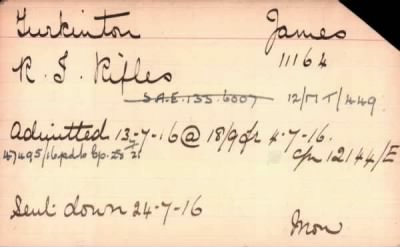 Turkinton James
11164
R. I. Rifles
S.A.E. 135.6007 12/MT/449
Admitted 13-7-16 @ 18/9 fr 4-7-16.
47495/16 c/n 12144/E
Sent down 24-7-16